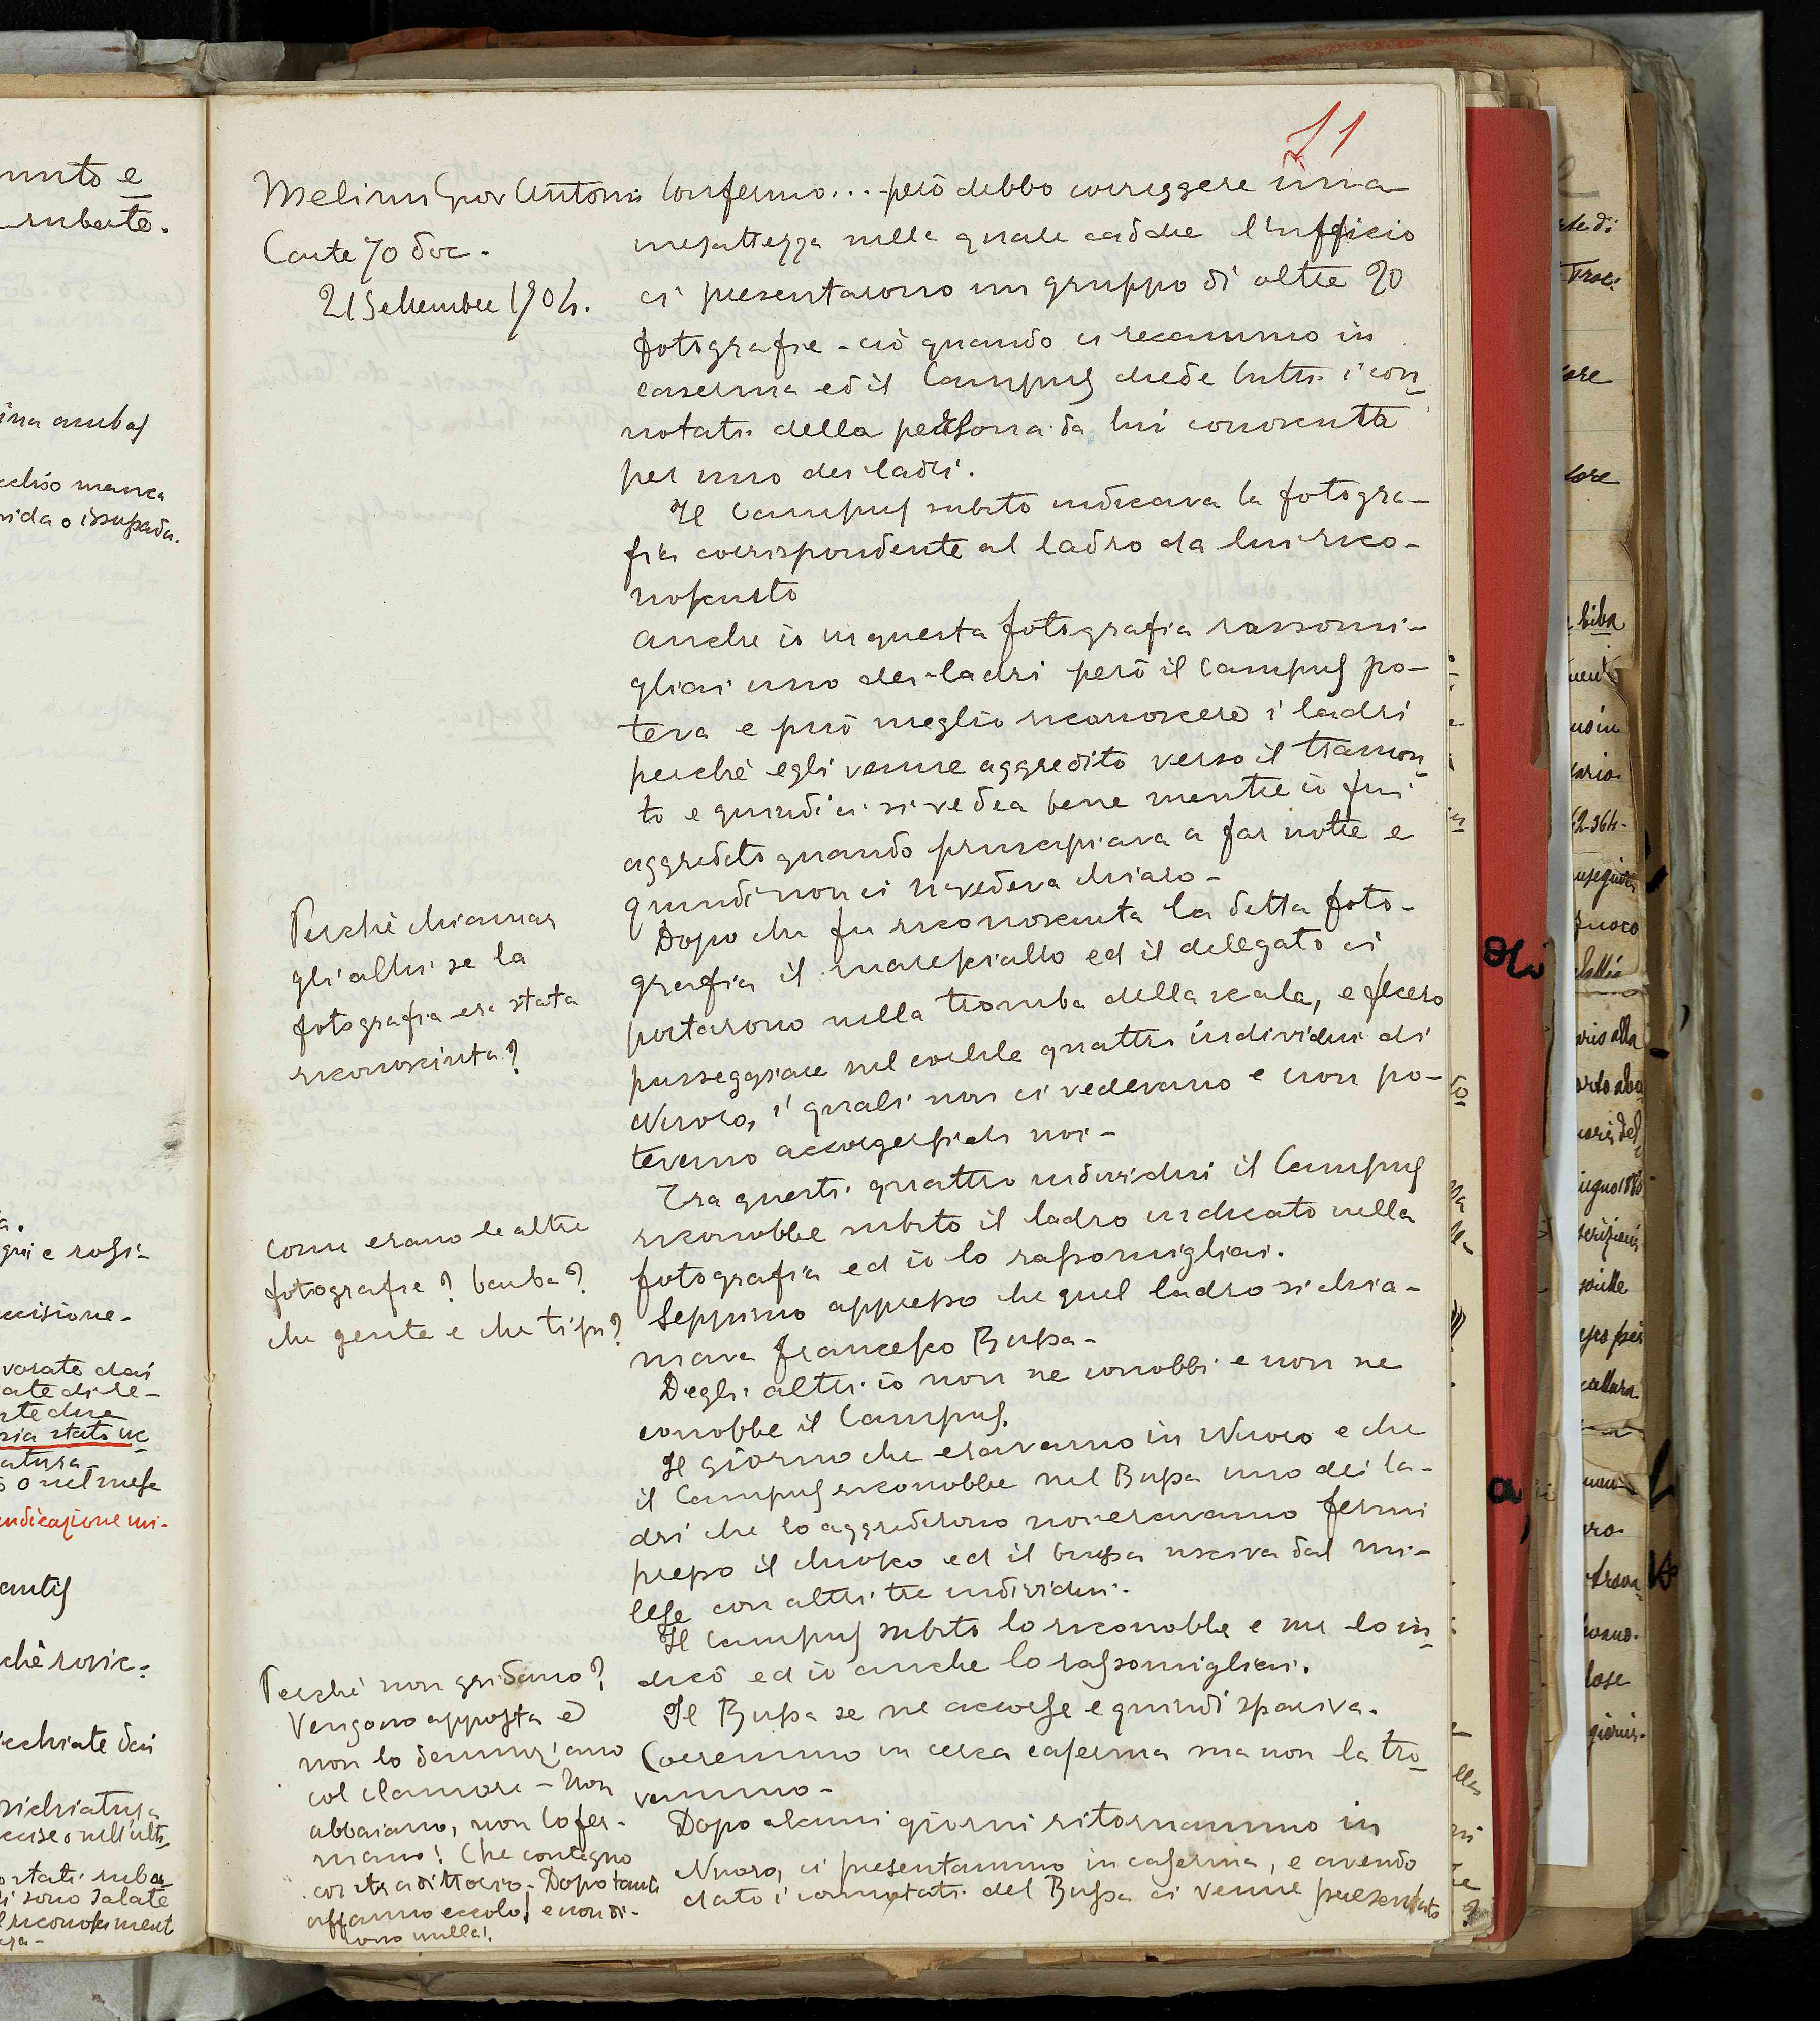 11
Melinu Giov Antoni
Carte 70 doc.
21 Settembre 1904.
Confermo... però debbo correggere una
inesattezza nella quale cadde l'ufficio
ci presentarono un gruppo di oltre 70
fotografie - ciò quando ci recammo in
caserma ed il Campus diede tutti i con
notati della persona da lui conosciuta
per uno dei ladri.
Il Campus subito indicava la fotogra-
fia corrispondente al ladro da lui rico-
nosciuto
anche io in questa fotografia rassomi-
gliai uno dei ladri però il Campus po-
teva e può meglio riconoscere i ladri
perchè egli venne aggredito verso il tramon
to e quindi ci si vedea bene mentre io fui
aggredito quando principiava a far notte e
quindi non ci si vedeva chiaro-
Dopo che fu riconosciuta la detta foto-
grafia il maresciallo ed il delegato ci
portarono nella tromba della scala, e fecero
passeggiare nel cortile quattro individui di
Nuoro, i quali non ci vedevano e non po-
tevano accorgersi di noi-
Tra questi quattro individui il Campus
riconobbe subito il ladro indicato nella
fotografia ed io lo rassomigliai.
Seppimo appresso che quel ladro si chia-
mava Francesco Bussa-
Degli altri io non ne conobbi e non ne
conobbe il Campus.
Il giorno che eravamo in Nuoro e che
il Campus riconobbe nel Bussa uno dei la-
dri che lo aggredirono noi eravamo fermi
presso il chiosco ed il Bussa usciva dal mi-
lese con altri tre individui.
Il Campus subito lo riconobbe e me lo in
dicò ed io anche lo rassomigliai.
Il Bussa se ne accorse e quindi spariva.
Corremmo in cerca caserma ma non la tro
vammo-
Dopo alcuni giorni ritornammo in
Nuoro, ci presentammo in caserma, e avendo
dato i connotati del Bussa ci venne presentato
Perchè chiamar
gli altri se la
fotografia era stata
riconosciuta?
come erano le altre
fotografie? barba?
che gente e che tipi?
Perchè non gridano?
Vengono apposta e
non lo denunziano
col clamore - Non
abbaiano, non lo fer-
mano! Che contegno
contradittorio - Dopo tanto
affanno eccolo! e non di-
cono nulla!